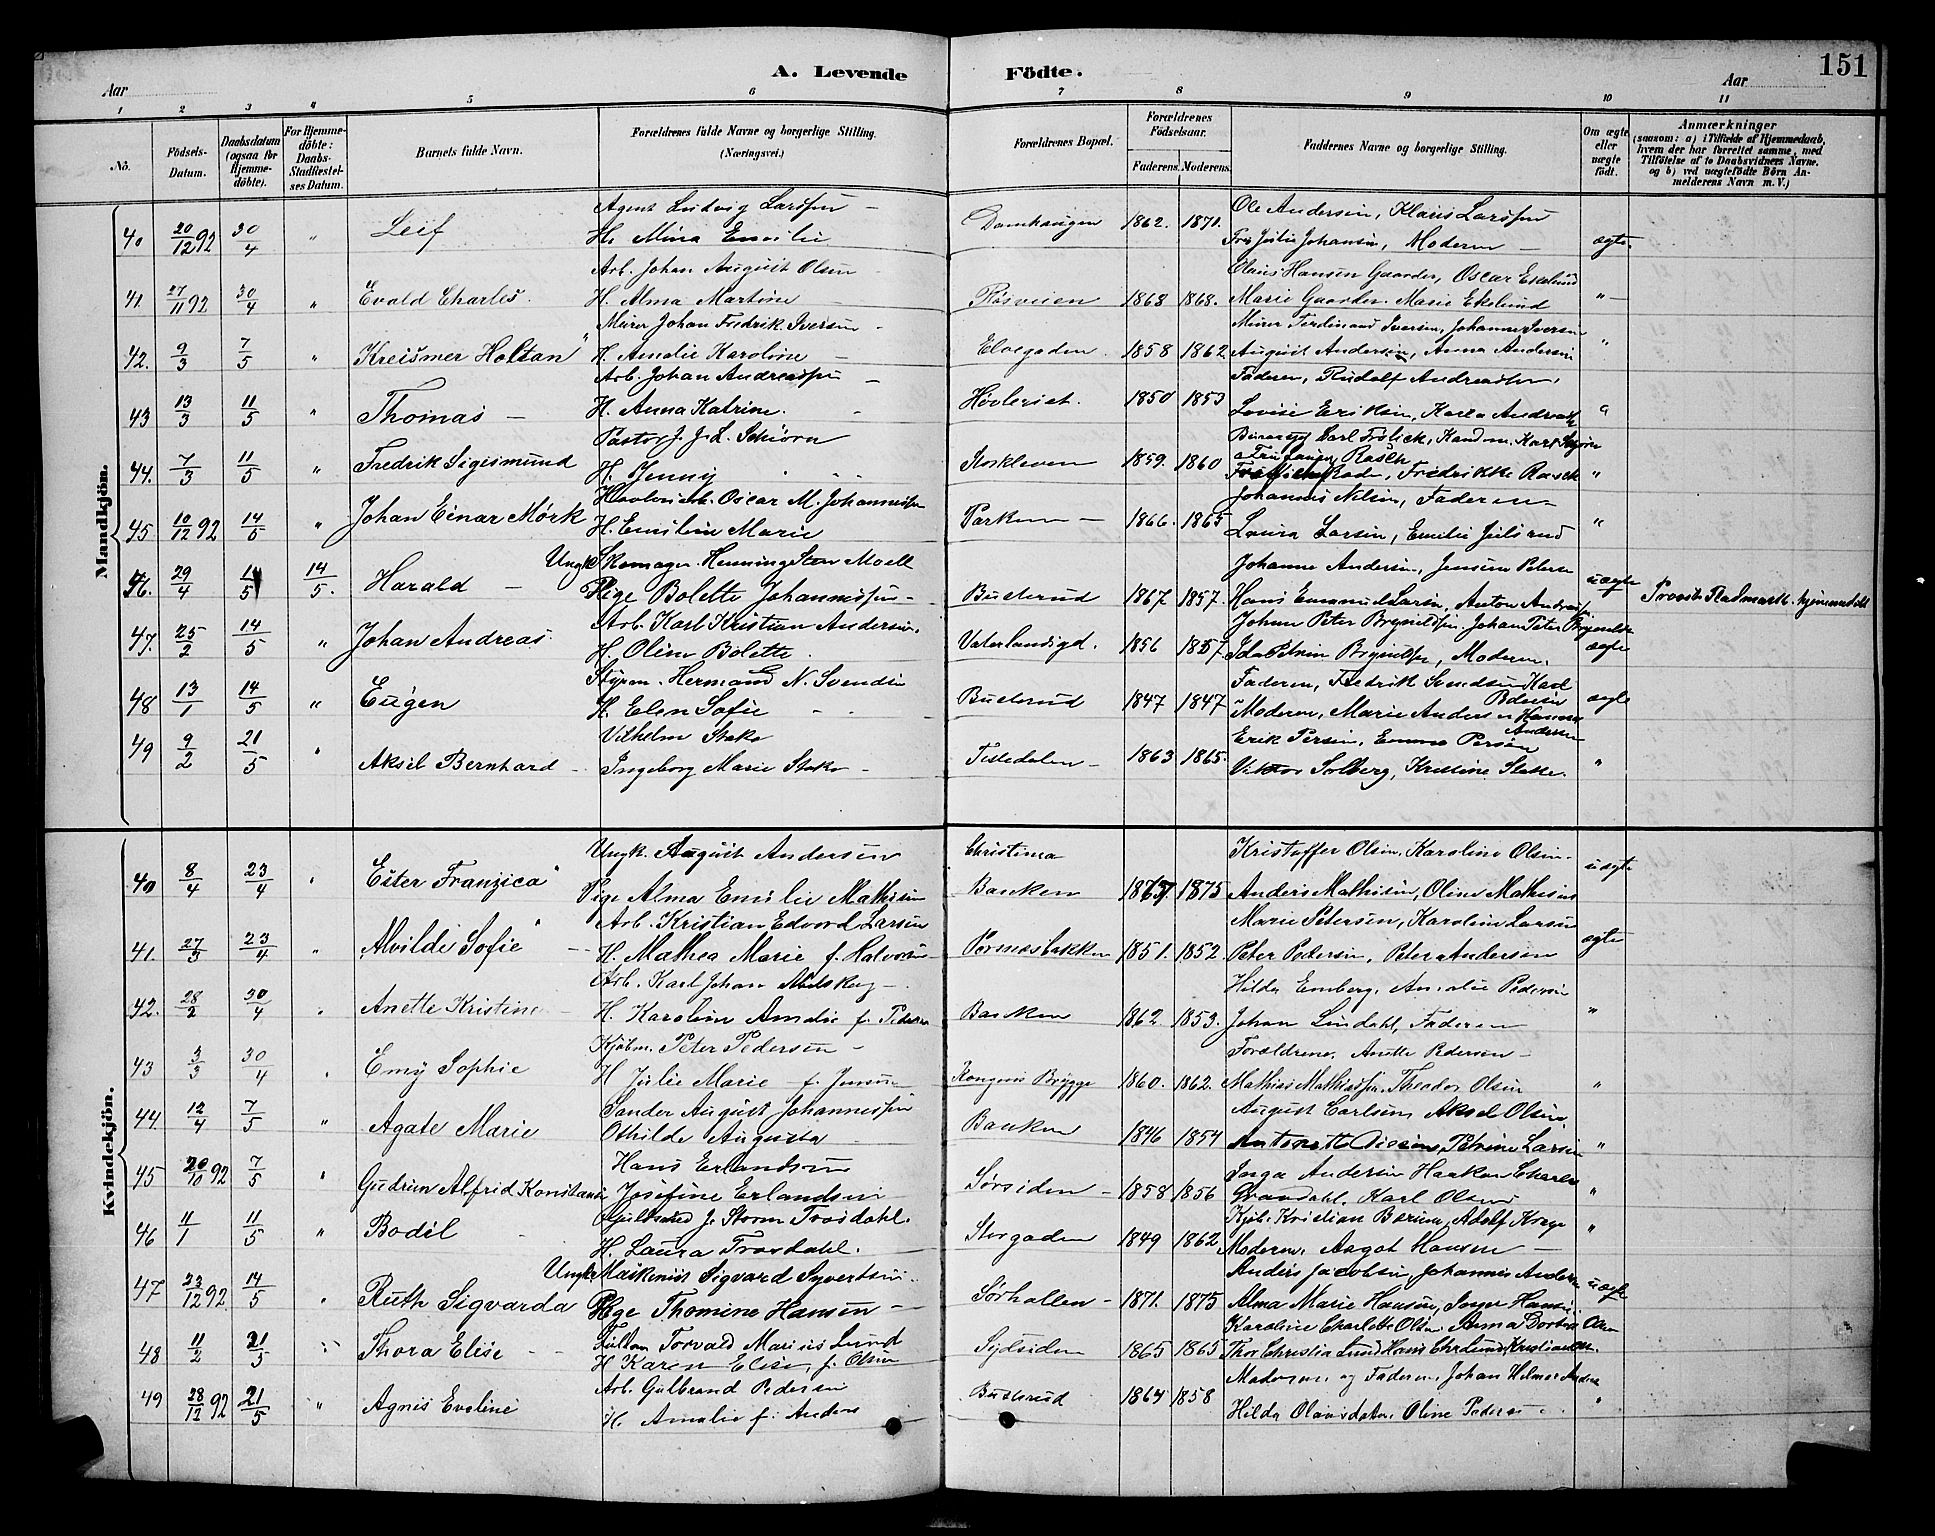 A. Levende Födte.
151
Aar
Aar
1 2 3 4 5 6 7 8 9 10 11
No.
Födsels-Datum.
Daabsdatum (ogsaa for Hjemmedöbte).
For Hjemmedöbte: Daabs-Stadfæstelses Datum.
Barnets fulde Navn.
Forældrenes fulde Navne og borgerlige Stilling. (Næringsvei.)
Forældrenes Bopæl.
Forældrenes Födselsaar.
Faderens. Moderens.
Faddernes Navne og borgerlige Stilling.
Om ægte eller uægte födt.
Anmærkninger
(saasom: a) i Tilfælde af Hjemmedaab, hvem der har forrettet samme, med Tilföielse af to Daabsvidners Navne. og b) ved uægtefödte Börn Anmelderens Navn m. V.)
Mandkjön.
Agent Ludvig Larssen — Ole Andersen, Klaus Larssen
40 20/12 92 30/4 " Leif H. Mina Emilie Damhaugen 1862. 1871. Frk Julie Johansen, Moderen — ægte.
Arb. Johan August Olsen Claus Hansen Gaarder, Oscar Ekelund
41 27/11 92 30/4 " Evald Charles. H. Alma Martine — Røsveien 1868 1868. Marie Gaarder. Marie Ekelund " —
Murer Johan Fredrik Iversen - Murer Ferdinand Iversen, Johanne Iversen
42. 9/3 7/5 " Kreismer Holtan" H. Amalie Karoline — 1858 1862 August Andersen, Anna Andersen "
Arb. Johan Andreassen — Faderen, Rudolf Andreassen,
43 13/3 11/5 " Thomas — H. Anna Katrine. Høvleriet. 1850 1853 Lovise Eriksen, Karla Andreass
Pastor J. J. L. Schiørn
44. 7/3 11/5 " Fredrik Sigismund H. Jenny " " 1859. 1860 Fredrikke Rasch "
Oscar M. Johannessen Johannes Nilsen, Faderen
45 10/12 92 14/5 " Johan Einar Mørk H. Emilie Marie Parken — 1866. 1865 Laura Larsen, Emilie "
Ungk. Skomager Henning Sten Moell Johanne Andersen, Jensine Peterse
46. 29/4 14/5 14/5. Harald — Pige Bolette Johannessen — Busterud 1867 1857. Hans Emanuel Larsen, Anton Andreass uægte
Arb. Karl Kristian Andersen. Johan Peter Brynildsen, Johan Peter Brynilds
47. 25/2 14/5 " Johan Andreas. H. Oline Bolette. Vaterlandsgd. 1856 1857 Ida Petrine Brynildsen, Moderen. ægte
Styrm. Hermand N. Svendsen Faderen, Fredrik Svendsen Karl
48 13/1 14/5 " Eugen H. Elen Sofie - - Busterud 1847 1847 Moderen, Marie Andersen Hanna Andersen ægte
Vilhelm Stake Erik Persen, Emma Persen
49 9/2 21/5 " Aksel Bernhard — Ingeborg Marie Stake — Tistedalen — 1863 1865. Viktor Solberg, Kristine Stake. "
Kvindekjön.
Ungk. August Andersen Christina Kristoffer Olsen, Karoline Olsen.
40 8/4 23/4 " Ester Franzica" Pige Alma Emilie Mathisen Banken 1875 Anders Mathisen, Oline Mathisen uægte
Arb. Kristian Edvard Larsen Marie Petersen, Karoline Larsen
41. 27/3 23/4 " Alvilde Sofie" — H. Mathea Marie f. Halvorsen 1851. 1852 Peter Pedersen, Peter Andersen ægte
Arb. Karl Johan — Hilda Emberg, Amalie Pedersen
42. 28/2 30/4 " Anette Kristine — H. Karoline Amalie f. Pedersen Banken 1862 1853. Johan Lindahl, Faderen "
Kjøbm. Peter Pedersen — Forældrene, Anette Pedersen —
43 3/3 30/4 " Emy Sophie H. Julie Marie — f. Jensen Kongens Brygge 1860. 1862. Mathias Mathissen, Theodor Olsen "
Sander August Johannessen August Carlsen, Aksel Olsen.
44 12/4 7/5 " Agate Marie Othilde Augusta Banken 1846 1854 Petrine Larsen "
Hans Erlandsen Inga Andersen Haakon Charles
45 20/10 92 7/5 " Gudrun Alfrid Konstanse Josefine Erlandsen Sørsiden — 1858 1856 Grandahl. Karl Olsen "
J. Storm Trosdahl. Kjøb. Kristian Børum, Adolf Krege
46 11/1 11/5 " Bodil H. Laura Trosdahl. Storgaden 1849 1862 Moderen, Aagot Hansen — "
Ungk. Maskenist Sigvard Syvertsen. Anders Jacobsen, Johannes Anders
47 23/12 92 14/5 " Ruth Sigvarda Pige Thomine Hansen — Sørhallen — 1871. 1875 Alma Marie Hansen, Inger Hansen. uægte
Torvald Marius Lund Karoline Charlotte Olsen, Anna Dortea Olsen
48 11/2 21/5 " Thora Elise — H. Karen Elise, f. Olsen Sydsiden 1865 1865 Thor Christia Lund Hans Chr Lund Kristian
Arb. Gulbrand Pedersen Moderen og Faderen. Johan Helmer Anders
49 28/12 92 21/5 " Agnes Eveline H. Amalie f. Anders Busterud 1864 1858 Hilda Olausdatter, Oline Pedersen "